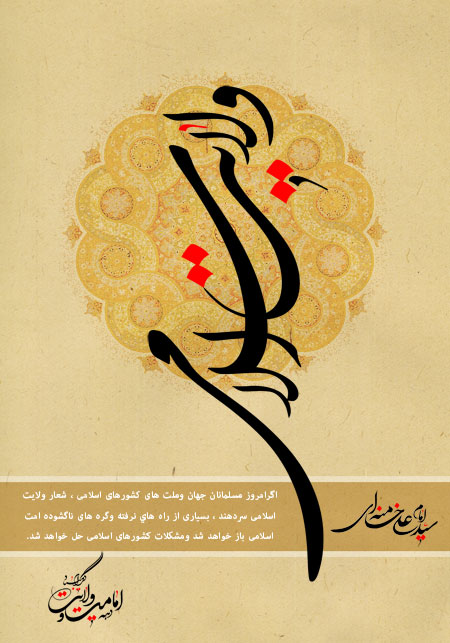 ولایت
اگرامروز مسلمانان جهان وملت های کشورهای اسلامی ، شعار ولایت
اسلامی سردهند ، بسیاری از راه هاي نرفته وگره های ناگشوده امت
اسلامی باز خواهد شد ومشکلات کشورهای اسلامی حل خواهد شد.
امام سید علی خامنه ای
دهه امامت و ولایت